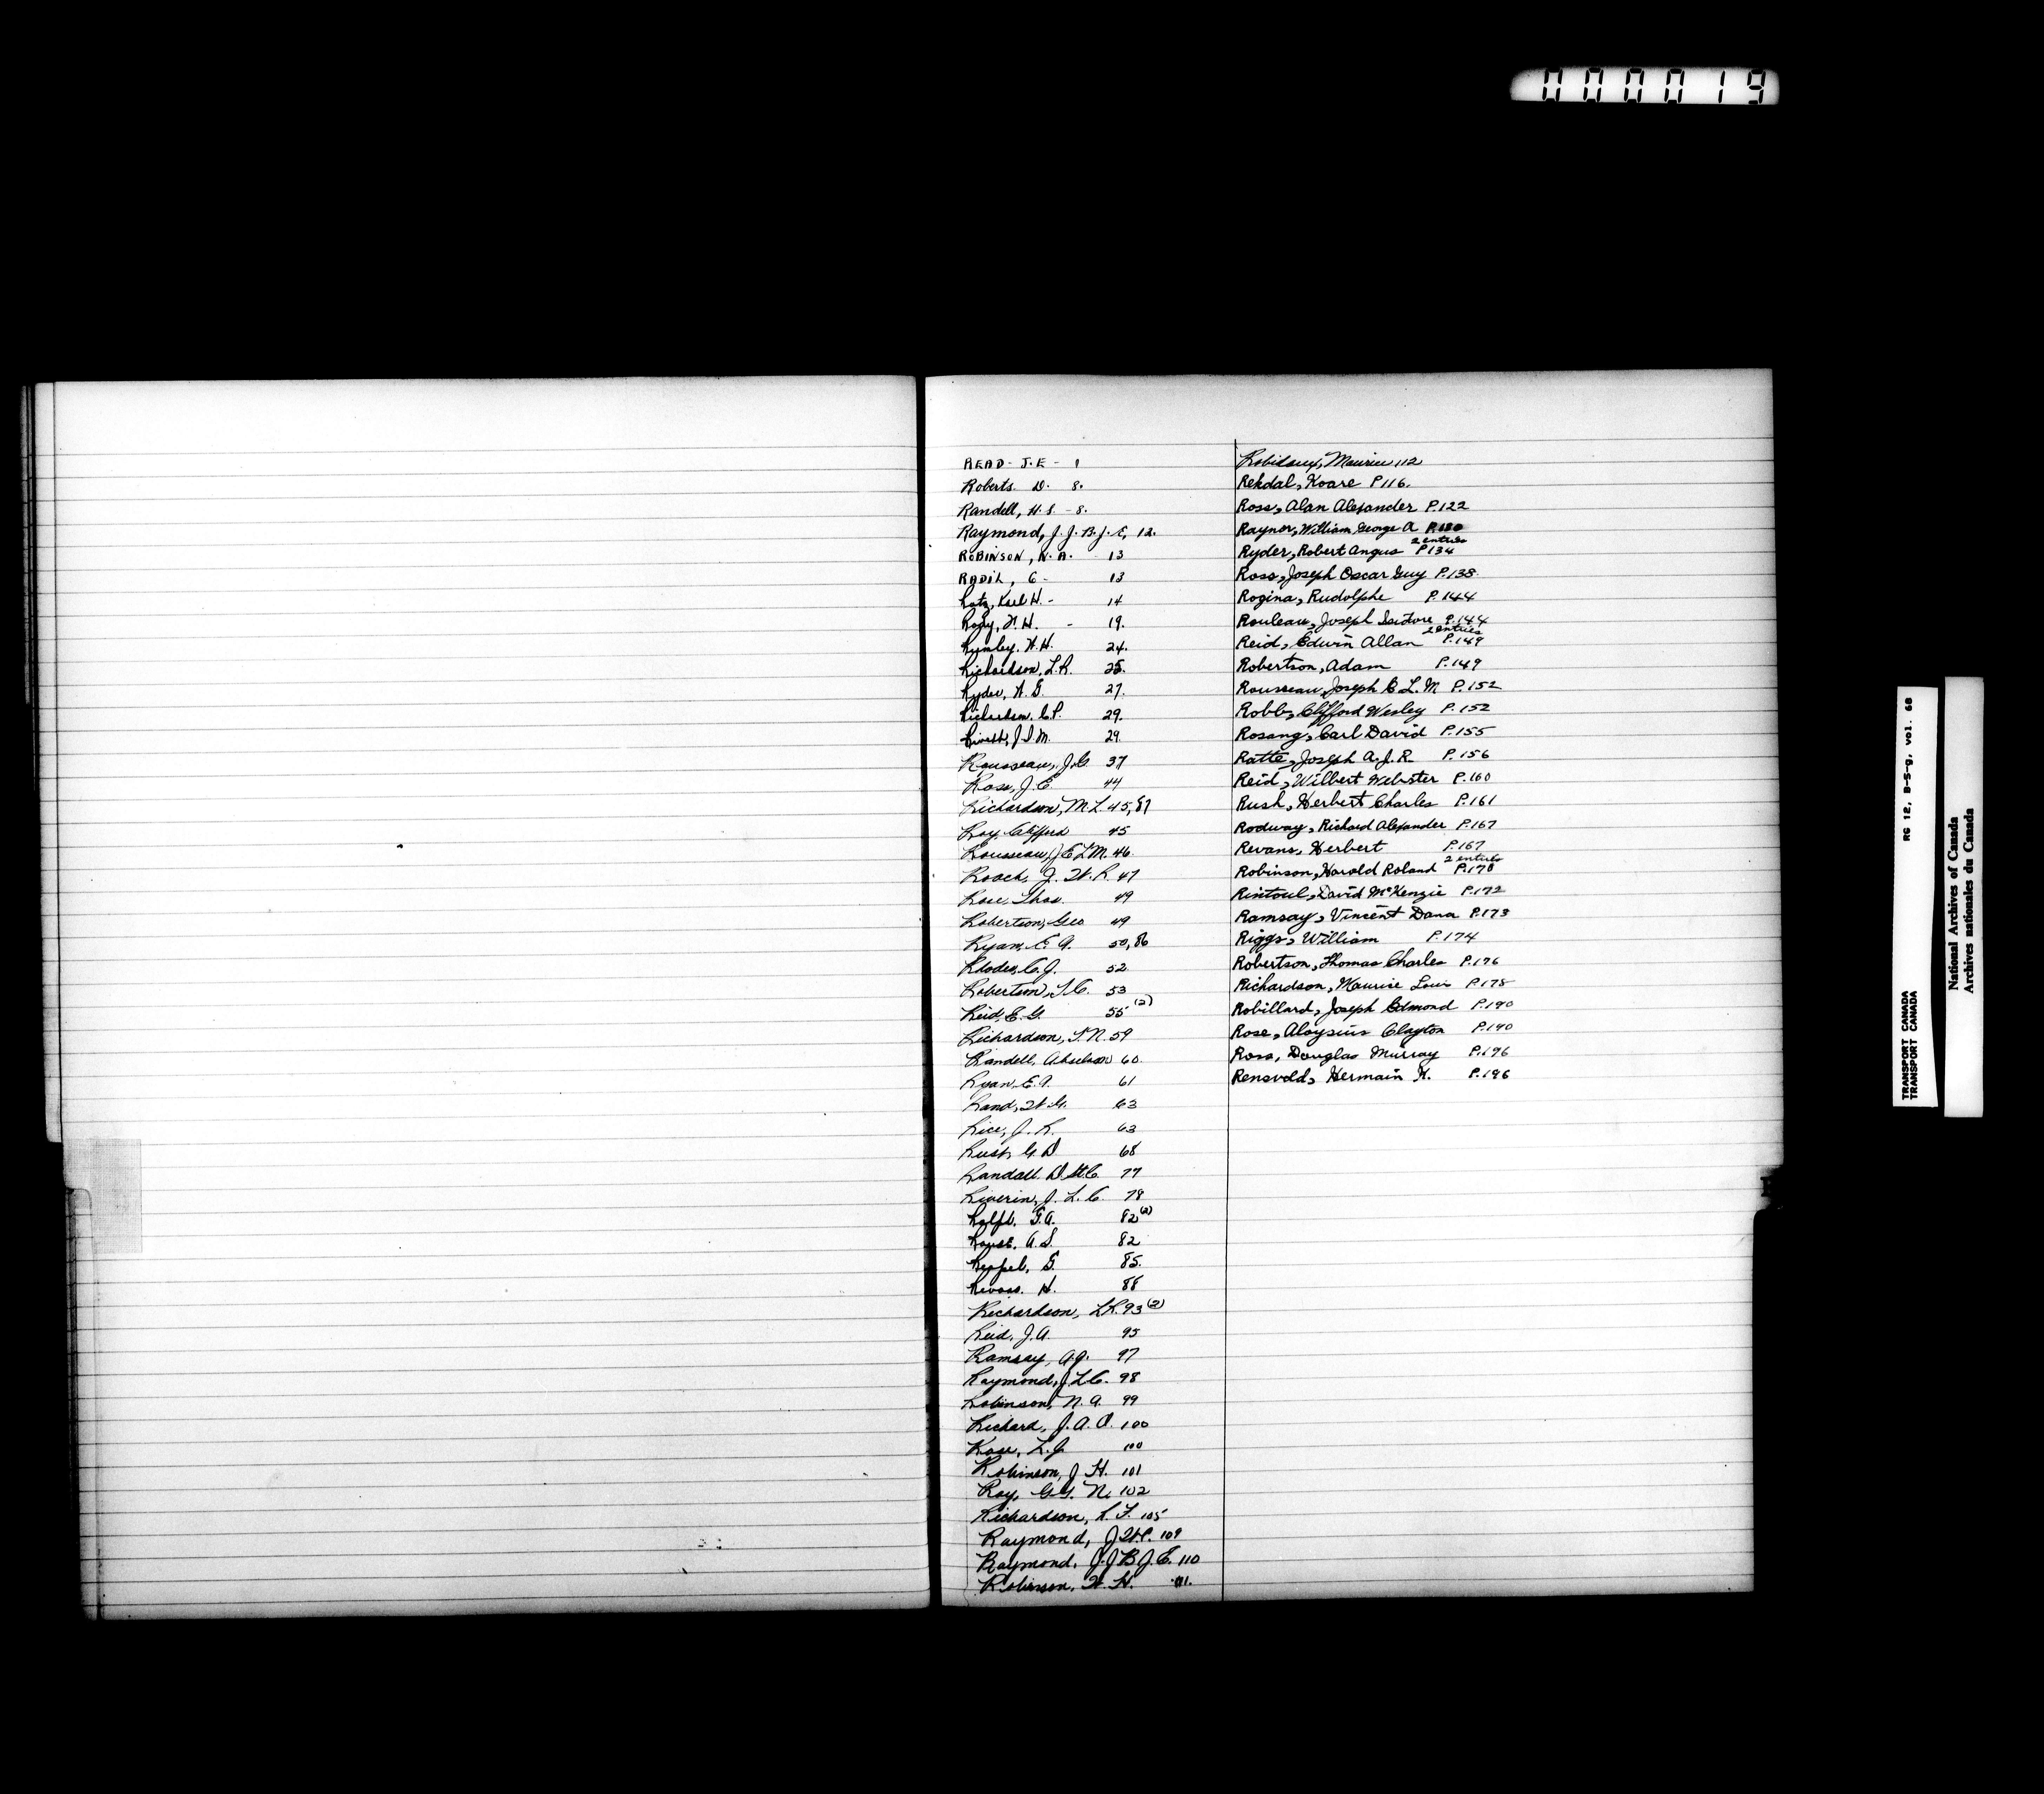 000019
READ - J.E - 1
Roberts. D. 8.
Randell, H.S. - 8.
Raymond, J.J.B.J.E, 12.
ROBINSON, N.A. - 13
RADIL, G - 13
Ratz, Karl H. - 14
Roby, N.H. - 19.
Rumley, W.H. 24.
Richardson, L.R. 25.
Ryder, H.G. 27.
Richardson, C.P. 29.
Rivest, J.S.M. 29.
Rousseau, J.G. 37
Ross, J.E. 44
Richardson, M.L. 45, 87
Roy, Clifford 45
Rousseau, J.E.L.M. 46
Roach, J.W.R. 47
Rose, Thos. 49
Robertson, Geo 49
Ryan, E.A. 50, 86
Rhodes, C.J. 52
Robertson, T.C. 53
Reid, E.G. 55 (2)
Richardson, T.N. 59
Randell, 60.
Ryan, E.A. 61
Rand, W.G. 63
Rice, J.R. 63
Rust, G.D. 68
Randall. D.St.C. 77
Riverin, J.L.C. 78
Rolph. G.A. 82 (2)
Roust. A.S. 82
Reppel, G. 85.
H. 88
Richardson, L.R. 93 (2)
Reid, J.A. 95
Ramsay, A.J. 97
Raymond, J.L.C. 98
Robinson, N.A. 99
Richard, J.A.O. 100
Rose, L.J. 100
Robinson, J.H. 101
Roy, G.G.N. 102
Richardson, L.F. 105
Raymond, J.W.P. 109
Raymond, J.J.B.J.E. 110
Robinson, W.H. 111.
Robidoux, Maurice 112
Rekdal, Koare P.116.
Ross, Alan Alexander P.122
Raynor, William George A P.130
Ryder, Robert Angus 2 entries P.134
Ross, Joseph Oscar Guy P.138.
Rogina, Rudolphe P.144
Rouleau, Joseph Isidore P.144
Reid, Edwin Allan 2 entries P.149
Robertson, Adam P.149
Rousseau, Joseph E L.M P.152
Robb, Clifford Wesley P.152
Rosang, Carl David P.155
Ratte, Joseph A.J.R. P.156
Reid, Wilbert Webster P.160
Rush, Herbert Charles P.161
Rodway, Richard Alexander P.167
Revans, Herbert P.167
Robinson, Harold Roland 2 entries P.170
Rintoul, David McKenzie P.172
Ramsay, Vincent Dana P.173
Riggs, William P.174
Robertson, Thomas Charles P.176
Richardson, Maurice Louis P.178
Robillard, Joseph Edmond P.190
Rose, Aloysius Clayton P.190
Ross, Douglas Murray P.196
Rensvold, Hermain H. P.196
TRANSPORT CANADA RG 12, B-5-g, vol. 68
TRANSPORT CANADA
National Archives of Canada
Archives nationales du Canada